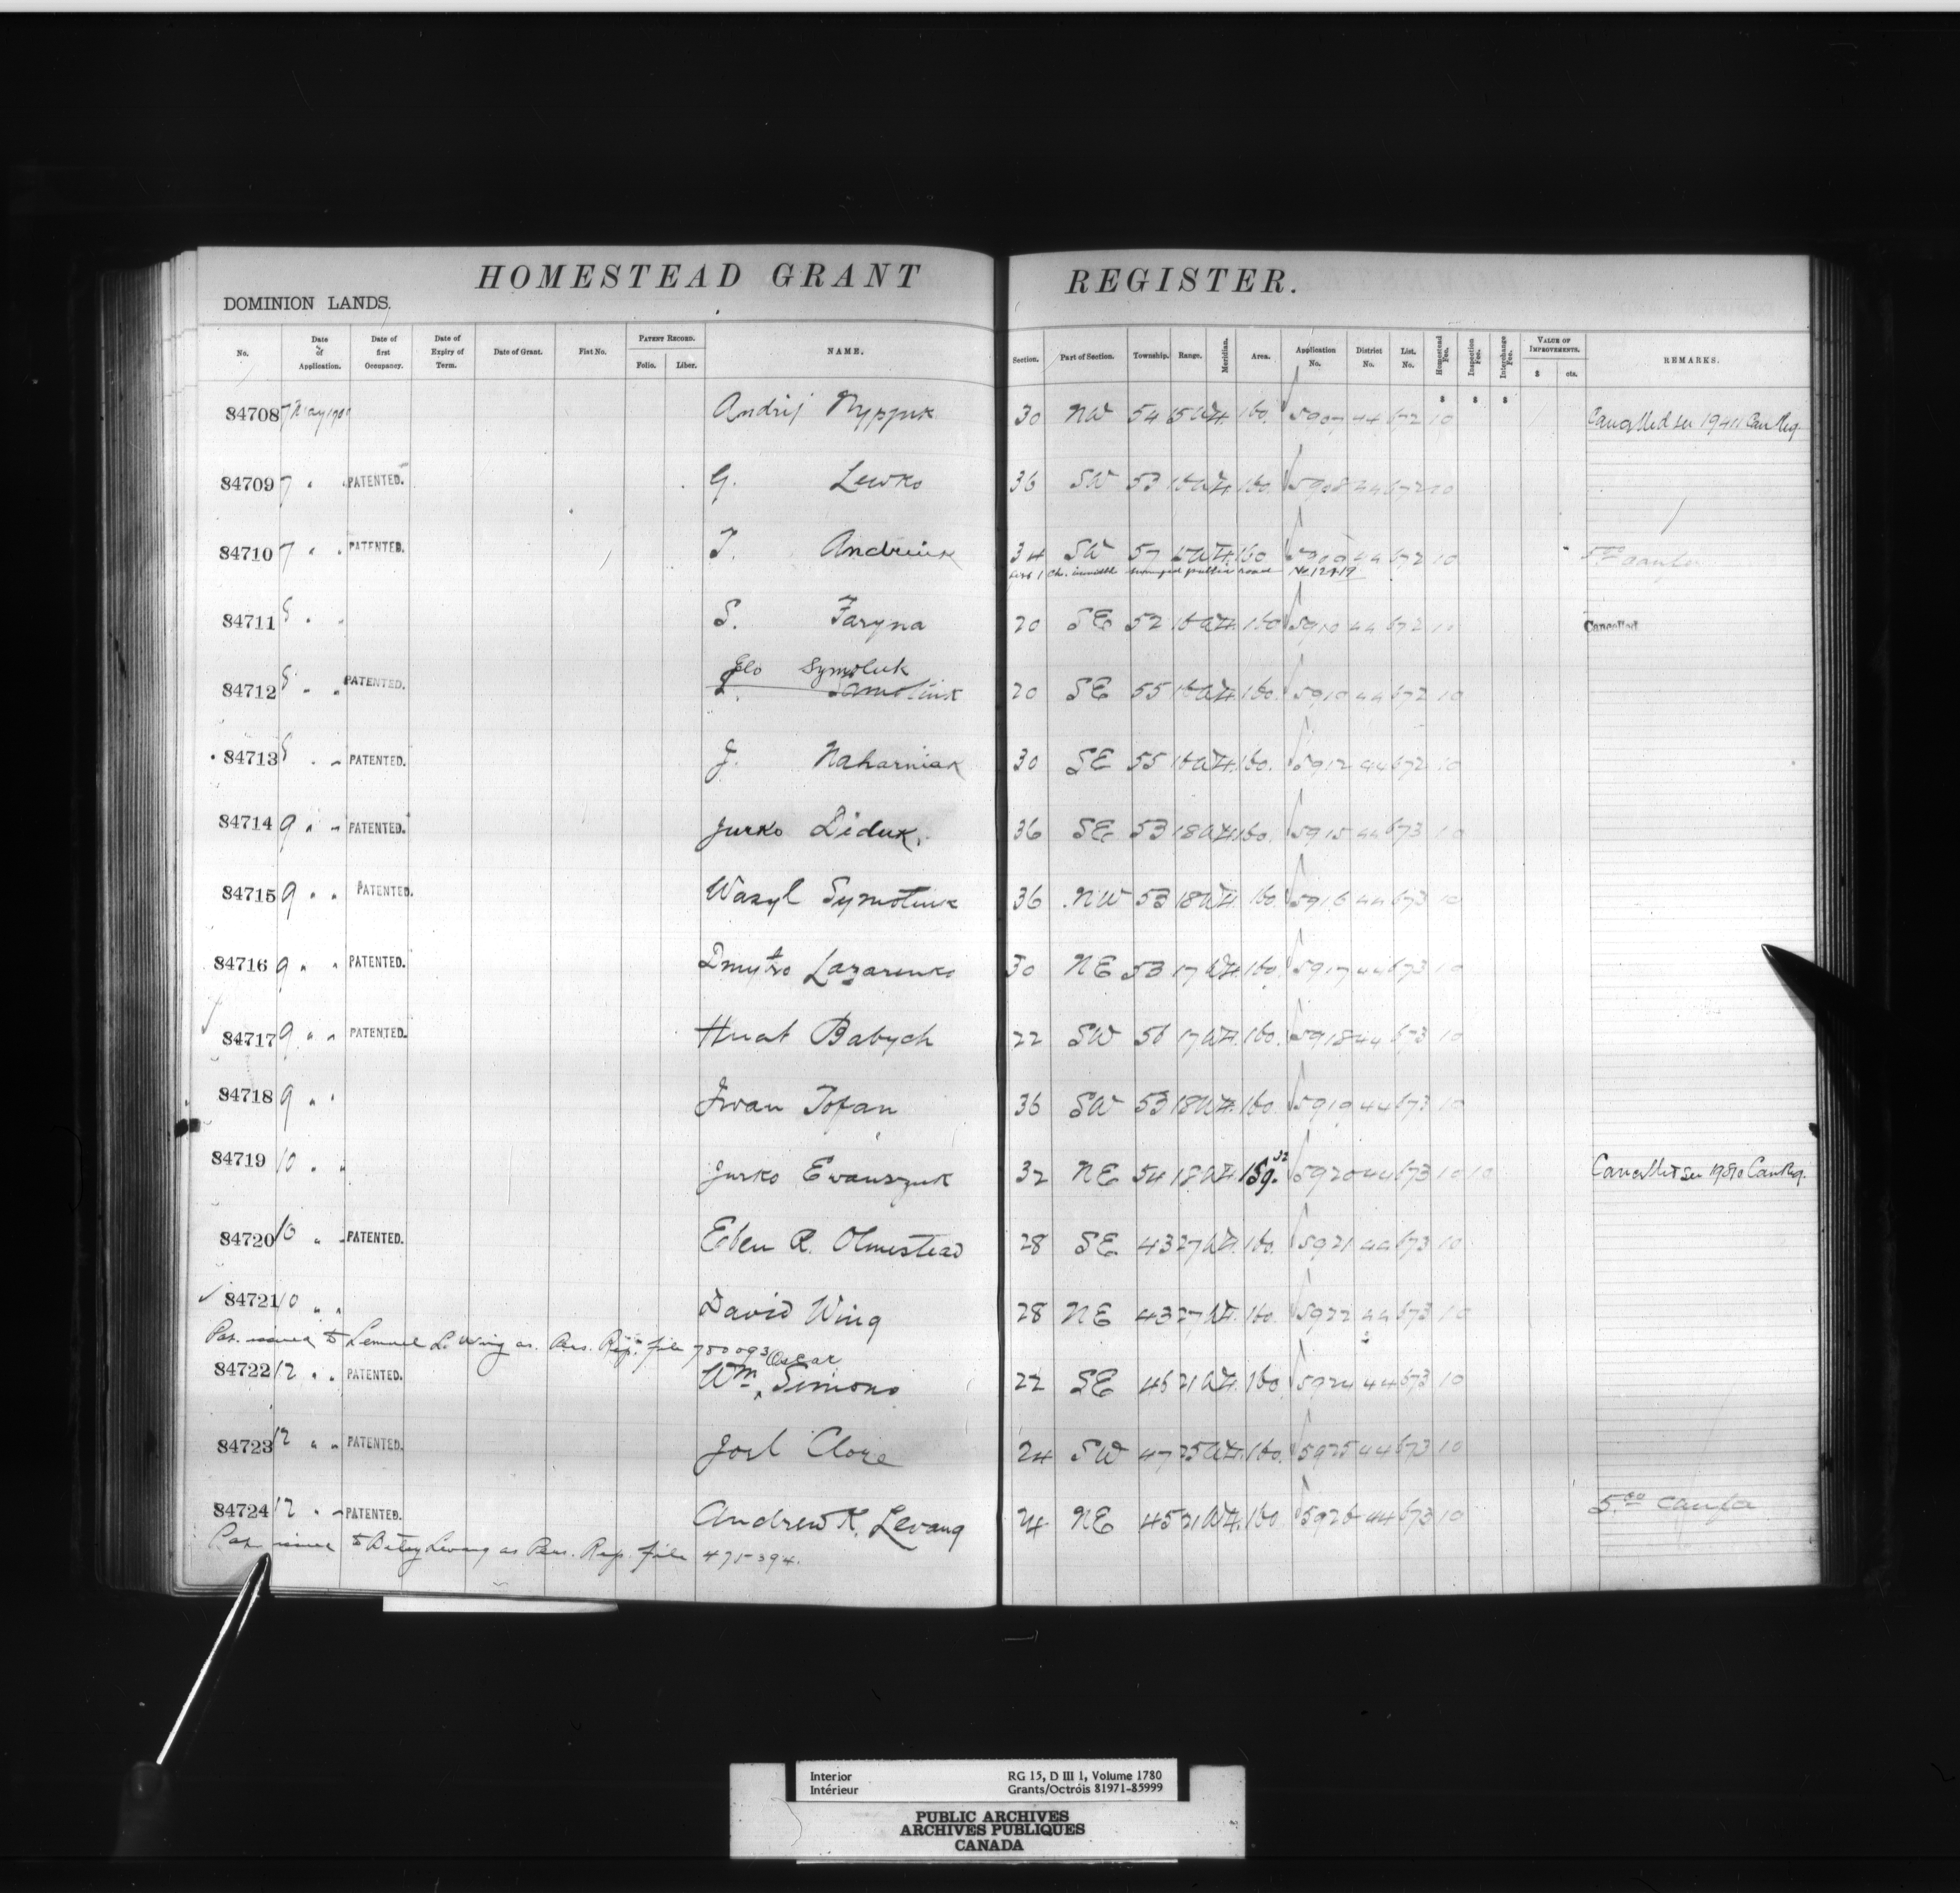 HOMESTEAD GRANT REGISTER.
DOMINION LANDS.
No. Date of Application. Date of first Occupancy. Date of Expiry of Term. Date of Grant. Fiat No. PATENT RECORD. Folio. Liber. NAME. Section. Part of Section. Township. Range. Meridian. Area. Application No. District No. List. No. Homestead Fee. Inspection Fee. Interchange Fee. VALUE OF IMPROVEMENTS. $ cts. REMARKS.
$ $ $
84708 7 May 1900 Andrij 30 NW 54 15 W4. 160. 5907 44 672 10 Cancelled see 19411 Can Reg.
84709 7 " " PATENTED. G. Lewko 36 SW 53 18 W4. 160. 5908 44 672 10
84710 7 " " PATENTED. T. Andruik 34 SW 57 W4. 160 44 672 10
public road No. 12719
84711 8 " " S. Faryna 20 SE 52 16 W4. 160 5910 44 672 10 Cancelled
Geo Symoluk
84712 8 " " PATENTED. 20 SE 55 16 W4. 160. 5910 44 672 10
84713 8 " " PATENTED. J. Naharniak 30 SE 55 16 W4. 160. 5912 44 672 10
84714 9 " " PATENTED. Jurko Diduk. 36 SE 53 18 W4. 160. 5915 44 673 10
84715 9 " " PATENTED. Wasyl Symotiuk 36 NW 53 18 W4. 160. 5916 44 673 10
84716 9 " " PATENTED. Dmytro Lazarenko 30 NE 53 17 W4. 160. 5917 44 673 10
84717 9 " " PATENTED. Hnat Babych 22 SW 56 17 W4. 160. 5918 44 673 10
84718 9 " " Iwan Tofan 36 SW 53 18 W4. 160. 5919 44 673 10
84719 10 " " Jurko Ewanszuk 32 NE 54 18 W4. 159. 5920 44 673 10 10 Cancelled see Can Reg.
84720 10 " " PATENTED. Eben R. Olmestead 28 SE 43 27 W4. 160. 5921 44 673 10
84721 10 " " David Wing 28 NE 43 27 W4. 160. 5922 44 673 10
Pat. issued to Lemuel L. Wing as. Pers. Rep. file 780093
Oscar
84722 12 " " PATENTED. Wm. Simons 22 SE 46 21 W4. 160. 5924 44 673 10
84723 12 " " PATENTED. Joel Clore 24 SW 47 25 W4. 160. 5925 44 673 10
84724 12 " " PATENTED. Andrew K. Levang 24 NE 45 21 W4. 160 5926 44 673 10 5.00
Pat. issued to Betsy Levang as Pers. Rep. file 475394.
Interior
Intérieur
RG 15, D III 1, Volume 1780
Grants/Octróis 81971-85999
PUBLIC ARCHIVES
ARCHIVES PUBLIQUES
CANADA